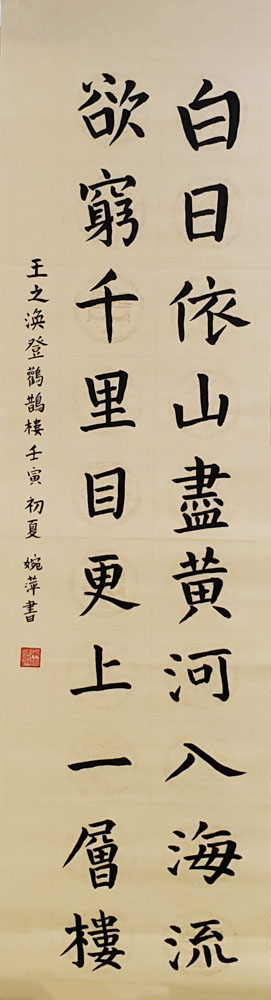 白日依山盡黃河入海流
欲窮千里目更上一層樓
王之渙登鸛鵲樓壬寅初夏 婉萍書